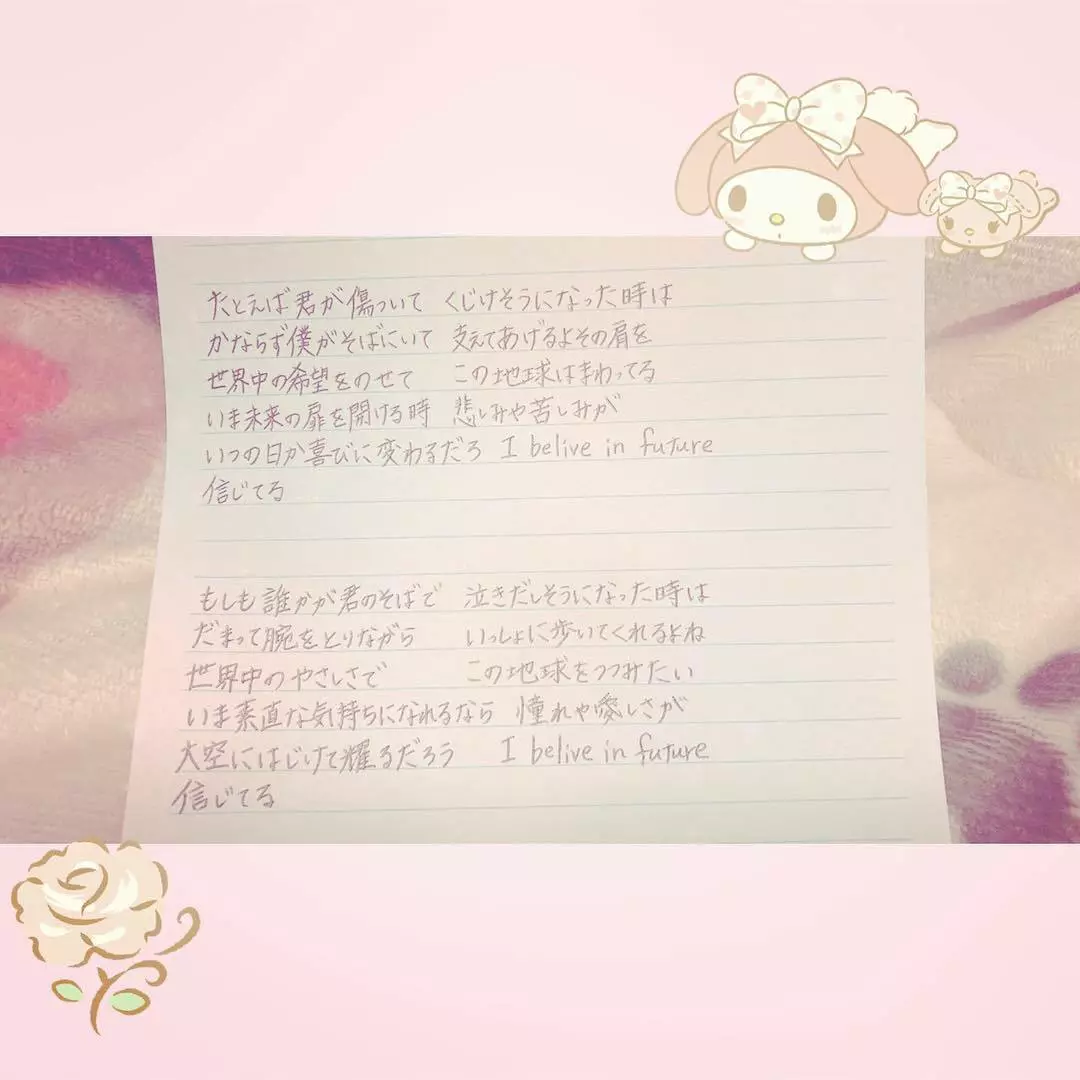 たとえば君が傷ついて くじけそうになった時は
かならず僕がそばにいて 支えてあげるよその肩を
世界中の希望をのせて この地球はまわってる
いま未来の扉を開ける時 悲しみや苦しみが
いつの日か喜びに変わるだろ I belive in future
信じてる
もしも誰かが君のそばで 泣きだしそうになった時は
だまって腕をとりながら いっしょに歩いてくれるよね
世界中のやさしさで この地球をつつみたい
いま素直な気持ちになれるなら 憧れや愛しさが
大空にはじけて耀るだろう I belive in future
信じてる